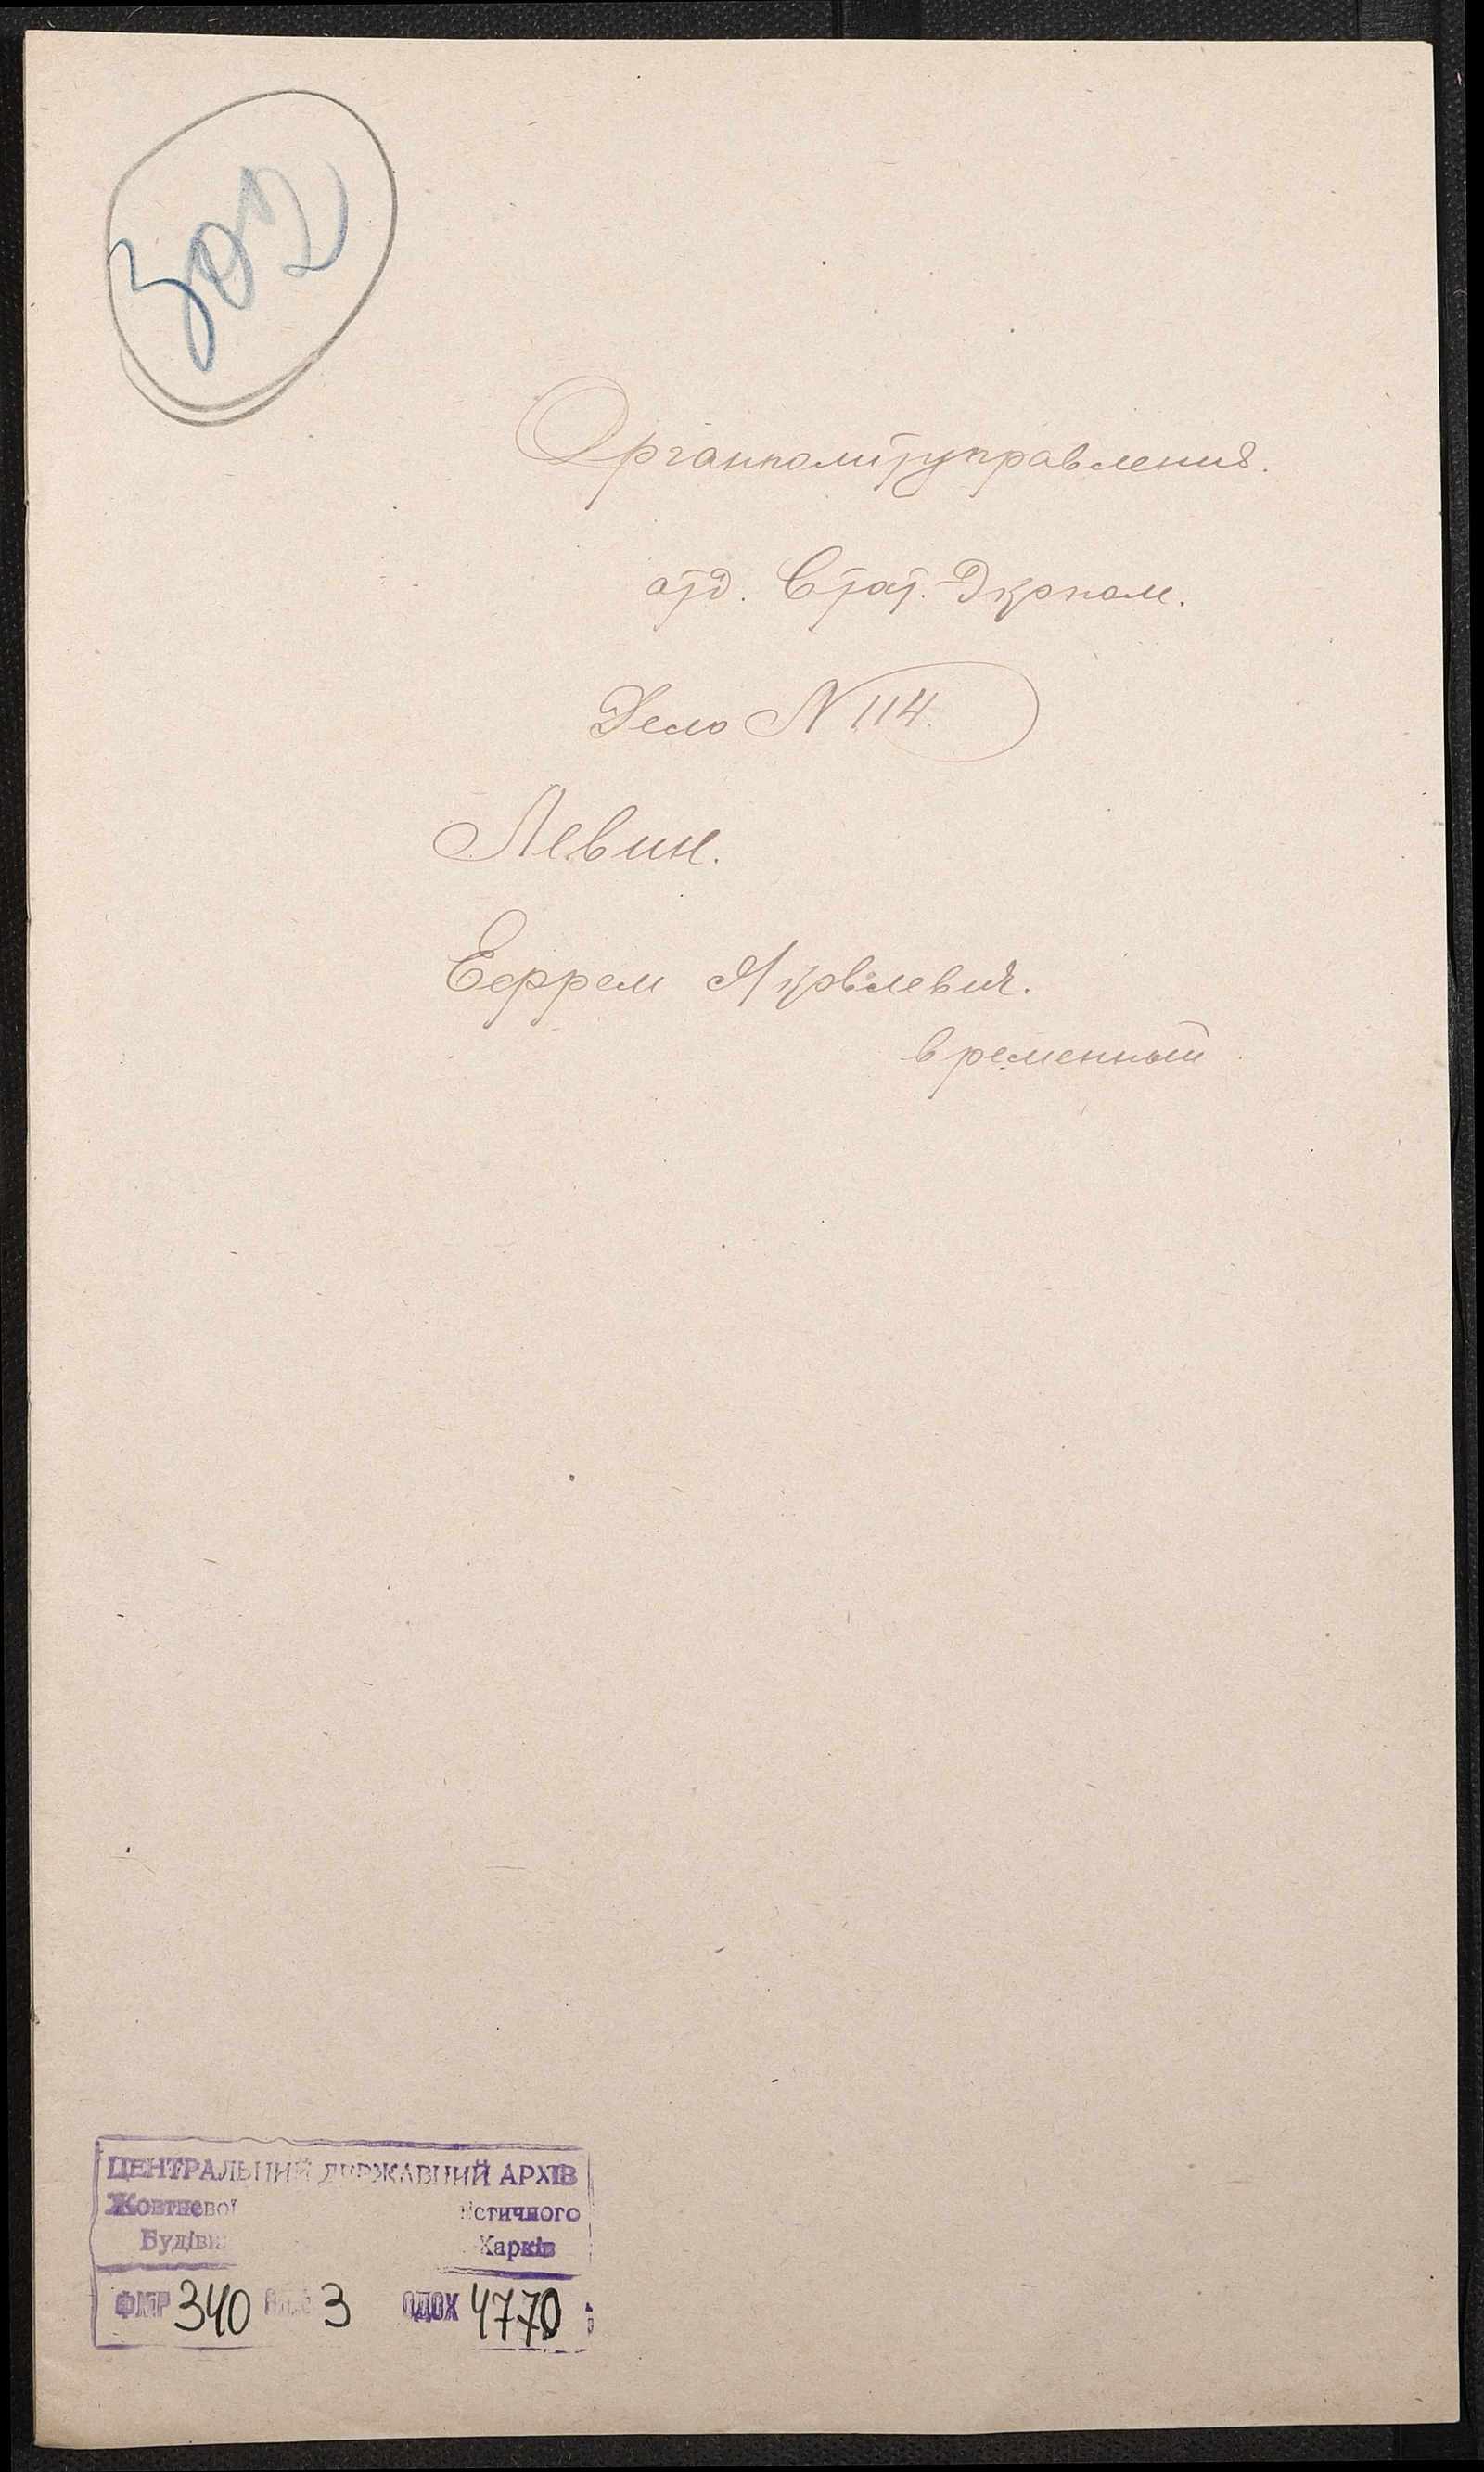 302
Органполитуправления.
отд. Стат. Эконом.
Дело N 114.
Левин.
Ефрем Яковлевич.
временный
ЦЕНТРАЛЬНИЙ ДЕРЖАВНИЙ АРХІВ
Жовтнево стичного
Будівн Харків
340 3 ОДОХ 4770